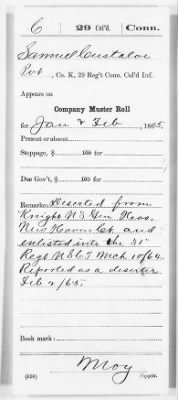 C 29 Col'd. Conn.
Samuel Custaloe
Pvt, Co. K, 29 Reg't Conn. Col'd Inf.
Appears on
Company Muster Roll
for Jan & Feb, 1865.
Present or absent
Stoppage, $ 100 for
Due Gov't, $ 100 for
Remarks: Deserted from
Knight U.S. Gen Hos.
New Haven Ct. and
enlisted into the 31"
Regt U.S.C.T. Mch 10/64
Reported as a deserter
Feb 2/65.
Book mark:
Moy
(358) Copyist.